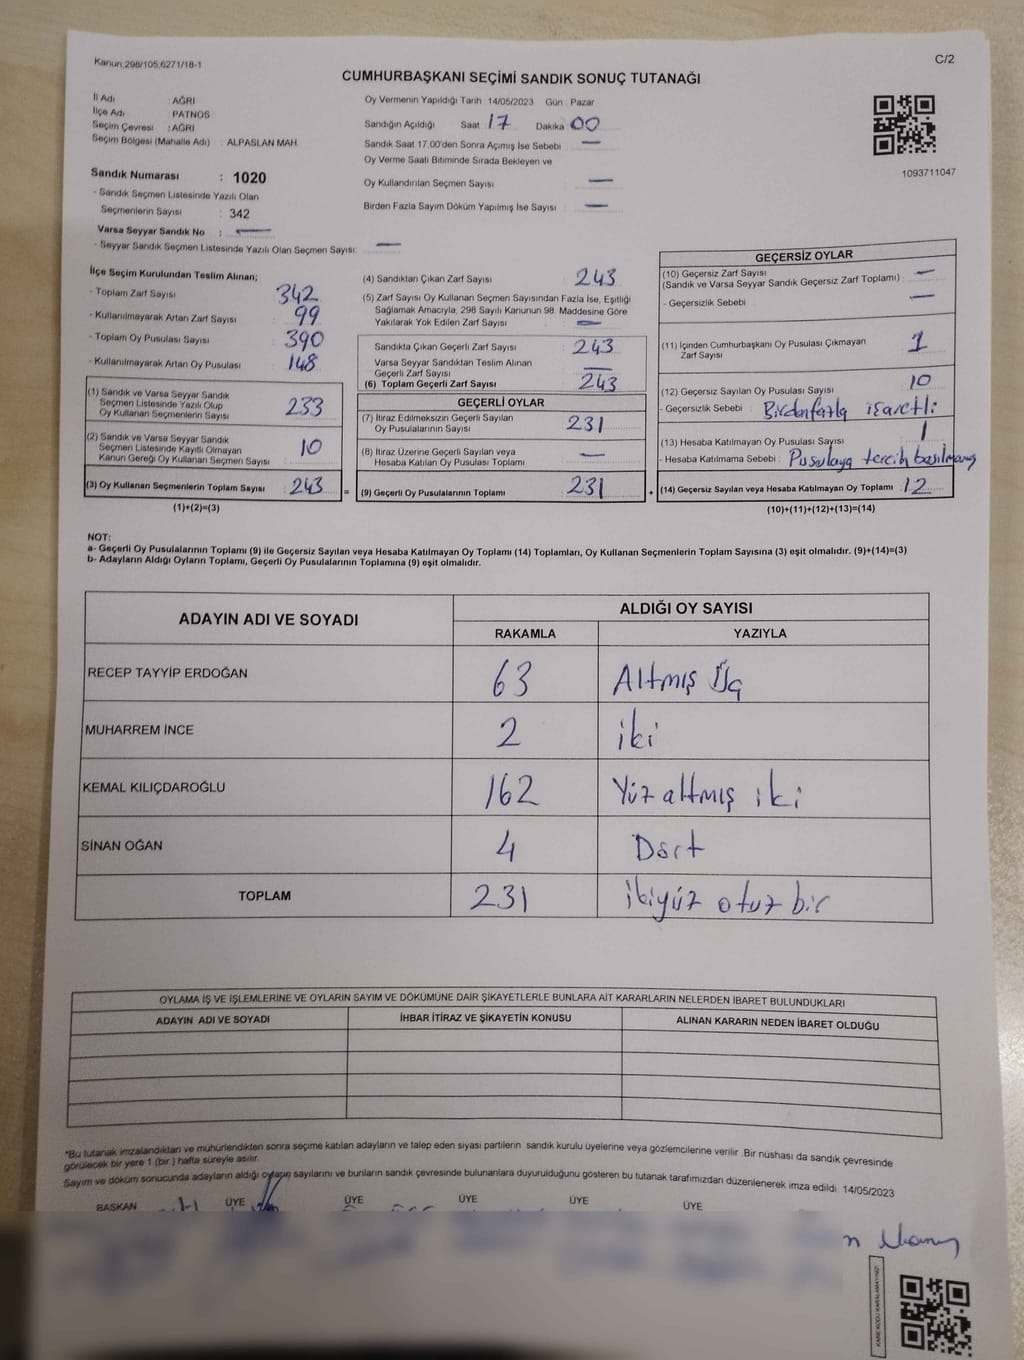 Kanun:298/105,6271/18-1
C/2
CUMHURBAŞKANI SEÇİMİ SANDIK SONUÇ TUTANAĞI
İl Adı : AĞRI
İlçe Adı : PATNOS
Seçim Çevresi : AĞRI
Seçim Bölgesi (Mahalle Adı) : ALPASLAN MAH.
Sandık Numarası : 1020
- Sandık Seçmen Listesinde Yazılı Olan
Seçmenlerin Sayısı : 342
Varsa Seyyar Sandık No : —
- Seyyar Sandık Seçmen Listesinde Yazılı Olan Seçmen Sayısı: —
Oy Vermenin Yapıldığı Tarih :14/05/2023 Gün : Pazar
Sandığın Açıldığı Saat 17 Dakika 00
Sandık Saat 17.00'den Sonra Açımış İse Sebebi —
Oy Verme Saati Bitiminde Sırada Bekleyen ve
Oy Kullandırılan Seçmen Sayısı —
Birden Fazla Sayım Döküm Yapılmış İse Sayısı —
1093711047
İlçe Seçim Kurulundan Teslim Alınan;
- Toplam Zarf Sayısı 342
- Kullanılmayarak Artan Zarf Sayısı 99
- Toplam Oy Pusulası Sayısı 390
- Kullanılmayarak Artan Oy Pusulası 148
(1) Sandık ve Varsa Seyyar Sandık
Seçmen Listesinde Yazılı Olup
Oy Kullanan Seçmenlerin Sayısı 233
(2) Sandık ve Varsa Seyyar Sandık
Seçmen Listesinde Kayıtlı Olmayan
Kanun Gereği Oy Kullanan Seçmen Sayısı 10
(3) Oy Kullanan Seçmenlerin Toplam Sayısı 243 =
(1)+(2)=(3)
(4) Sandıktan Çıkan Zarf Sayısı 243
(5) Zarf Sayısı Oy Kullanan Seçmen Sayısından Fazla İse, Eşitliği
Sağlamak Amacıyla, 298 Sayılı Kanunun 98. Maddesine Göre
Yakılarak Yok Edilen Zarf Sayısı —
Sandıkta Çıkan Geçerli Zarf Sayısı 243
Varsa Seyyar Sandıktan Teslim Alınan
Geçerli Zarf Sayısı —
(6) Toplam Geçerli Zarf Sayısı 243
GEÇERLİ OYLAR
(7) İtiraz Edilmeksizin Geçerli Sayılan
Oy Pusulalarının Sayısı 231
(8) İtiraz Üzerine Geçerli Sayılan veya
Hesaba Katılan Oy Pusulaları Toplamı —
(9) Geçerli Oy Pusulalarının Toplamı 231 +
GEÇERSİZ OYLAR
(10) Geçersiz Zarf Sayısı
(Sandık ve Varsa Seyyar Sandık Geçersiz Zarf Toplamı) : —
- Geçersizlik Sebebi : —
(11) İçinden Cumhurbaşkanı Oy Pusulası Çıkmayan
Zarf Sayısı : 1
(12) Geçersiz Sayılan Oy Pusulası Sayısı 10
- Geçersizlik Sebebi : Birden fazla işaretli
(13) Hesaba Katılmayan Oy Pusulası Sayısı 1
- Hesaba Katılmama Sebebi : Pusulaya tercih basılmamış
(14) Geçersiz Sayılan veya Hesaba Katılmayan Oy Toplamı : 12
(10)+(11)+(12)+(13)=(14)
NOT:
a- Geçerli Oy Pusulalarının Toplamı (9) ile Geçersiz Sayılan veya Hesaba Katılmayan Oy Toplamı (14) Toplamları, Oy Kullanan Seçmenlerin Toplam Sayısına (3) eşit olmalıdır. (9)+(14)=(3)
b- Adayların Aldığı Oyların Toplamı, Geçerli Oy Pusulalarının Toplamına (9) eşit olmalıdır.
ADAYIN ADI VE SOYADI
ALDIĞI OY SAYISI
RAKAMLA YAZIYLA
RECEP TAYYİP ERDOĞAN 63 Altmış Üç
MUHARREM İNCE 2 iki
KEMAL KILIÇDAROĞLU 162 Yüz altmış iki
SİNAN OĞAN 4 Dört
TOPLAM 231 ikiyüz otuz bir
OYLAMA İŞ VE İŞLEMLERİNE VE OYLARIN SAYIM VE DÖKÜMÜNE DAİR ŞİKAYETLERLE BUNLARA AİT KARARLARIN NELERDEN İBARET BULUNDUKLARI
ADAYIN ADI VE SOYADI İHBAR İTİRAZ VE ŞİKAYETİN KONUSU ALINAN KARARIN NEDEN İBARET OLDUĞU
*Bu tutanak imzalandıktan ve mühürlendikten sonra seçime katılan adayların ve talep eden siyasi partilerin sandık kurulu üyelerine veya gözlemcilerine verilir. Bir nüshası da sandık çevresinde
görülecek bir yere 1 (bir) hafta süreyle asılır.
Sayım ve döküm sonucunda adayların aldığı oyların sayılarını ve bunların sandık çevresinde bulunanlara duyurulduğunu gösteren bu tutanak tarafımızdan düzenlenerek imza edildi. 14/05/2023
BAŞKAN ÜYE ÜYE ÜYE ÜYE ÜYE
KARE KODU KARALAMAYINIZ!